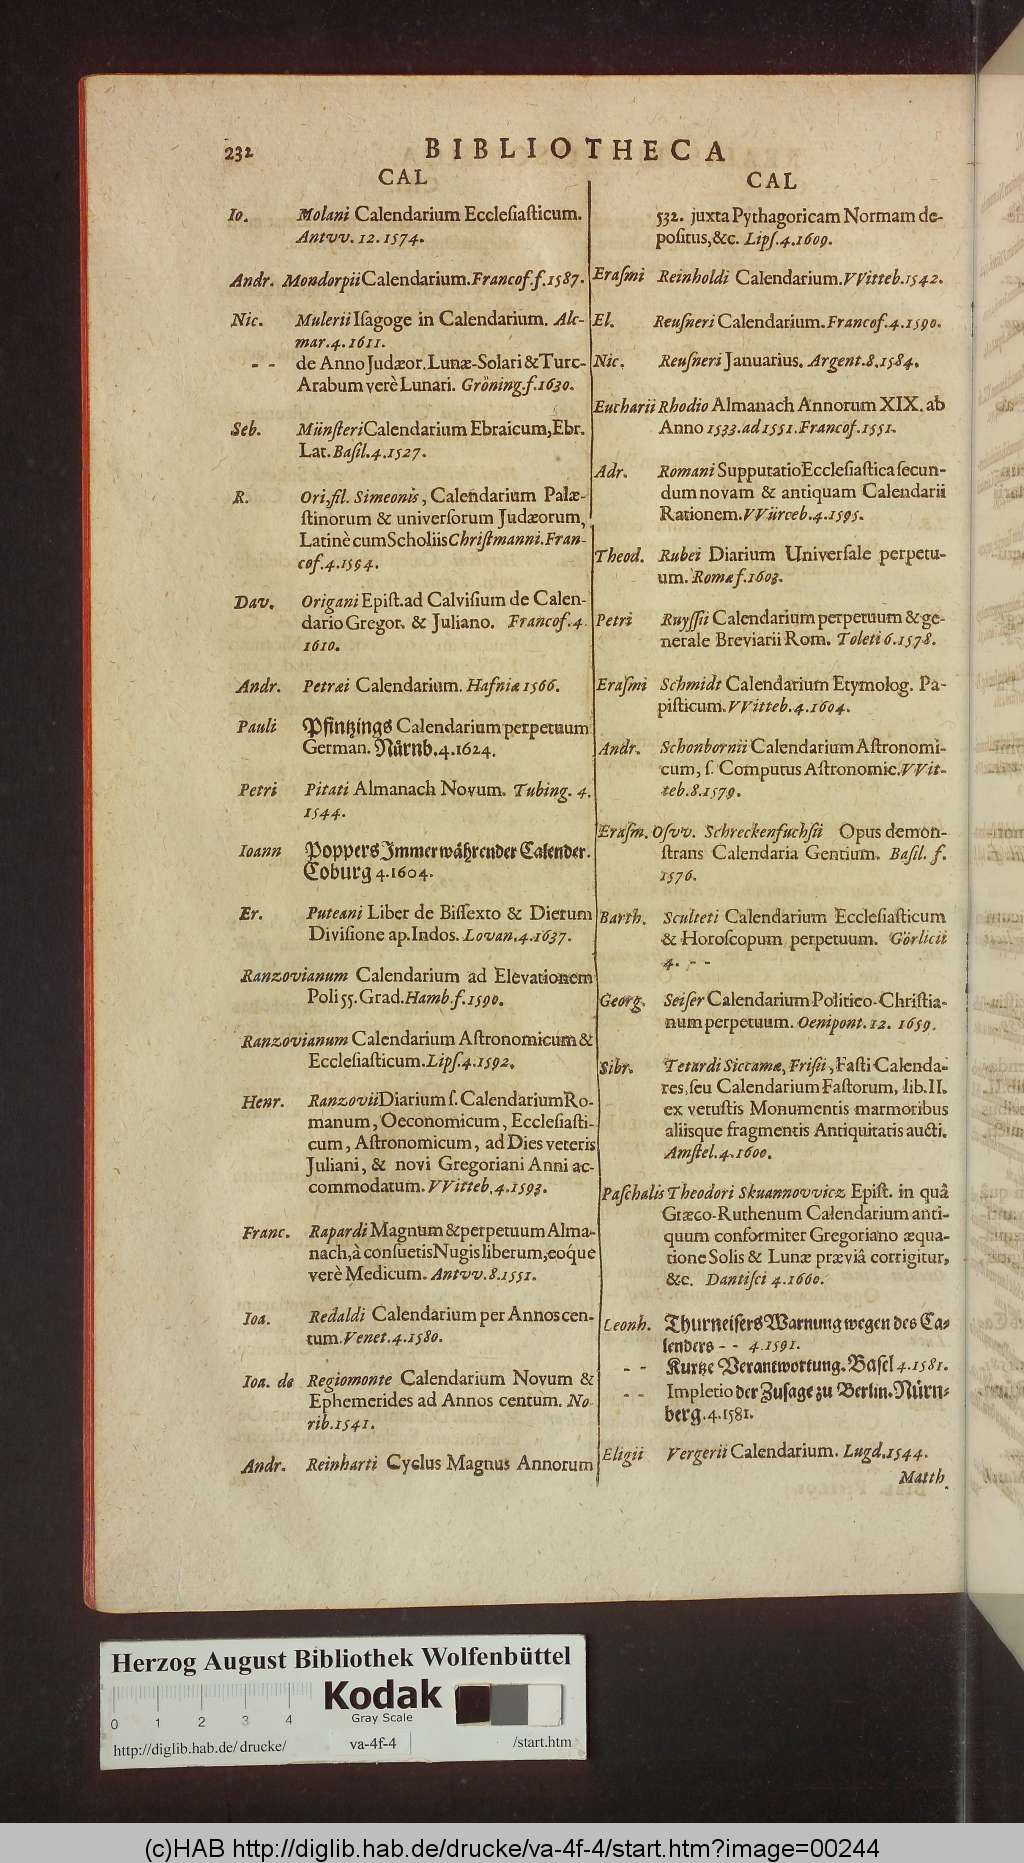 232 BIBLIOTHECA
CAL
Io. Molani Calendarium Ecclesiasticum.
Antvv. 12. 1574.
Andr. Mondorpii Calendarium. Francof. f. 1587.
Nic. Mulerii Isagoge in Calendarium. Alc-
mar. 4. 1611.
- - de Anno Judæor. Lunæ-Solari & Turc-
Arabum verè Lunari. Gröning. f. 1630.
Seb. Münsteri Calendarium Ebraicum, Ebr.
Lat. Basil. 4. 1527.
R. Ori, fil. Simeonis, Calendarium Palæ-
stinorum & universorum Judæorum,
Latinè cum Scholiis Christmanni. Fran-
cof. 4. 1594.
Dav. Origani Epist. ad Calvisium de Calen-
dario Gregor. & Juliano. Francof. 4.
1610.
Andr. Petræi Calendarium. Hafniæ 1566.
Pauli Pfintzings Calendarium perpetuum
German. Nürnb. 4. 1624.
Petri Pitati Almanach Novum. Tubing. 4.
1544.
Ioann Poppers Immerwährender Calender.
Coburg 4. 1604.
Er. Puteani Liber de Bissexto & Dierum
Divisione ap. Indos. Lovan. 4. 1637.
Ranzovianum Calendarium ad Elevationem
Poli 55. Grad. Hamb. f. 1590.
Ranzovianum Calendarium Astronomicum &
Ecclesiasticum. Lips. 4. 1592.
Henr. Ranzovii Diarium s. Calendarium Ro-
manum, Oeconomicum, Ecclesiasti-
cum, Astronomicum, ad Dies veteris
Juliani, & novi Gregoriani Anni ac-
commodatum. VVitteb. 4. 1593.
Franc. Rapardi Magnum & perpetuum Alma-
nach, à consuetis Nugis liberum, eoque
verè Medicum. Antvv. 8. 1551.
Ioa. Redaldi Calendarium per Annos cen-
tum. Venet. 4. 1580.
Ioa. de Regiomonte Calendarium Novum &
Ephemerides ad Annos centum. No-
rib. 1541.
Andr. Reinharti Cyclus Magnus Annorum
CAL
532. juxta Pythagoricam Normam de-
positus, &c. Lips. 4. 1609.
Erasmi Reinholdi Calendarium. VVitteb. 1542.
El. Reusneri Calendarium. Francof. 4. 1590.
Nic. Reusneri Januarius. Argent. 8. 1584.
Eucharii Rhodio Almanach Annorum XIX. ab
Anno 1533. ad 1551. Francof. 1551.
Adr. Romani Supputatio Ecclesiastica secun-
dum novam & antiquam Calendarii
Rationem. VVürceb. 4. 1595.
Theod. Rubei Diarium Universale perpetu-
um. Romæ f. 1603.
Petri Ruyssii Calendarium perpetuum & ge-
nerale Breviarii Rom. Toleti 6. 1578.
Erasmi Schmidt Calendarium Etymolog. Pa-
pisticum. VVitteb. 4. 1604.
Andr. Schonbornii Calendarium Astronomi-
cum, s. Computus Astronomic. VVit-
teb. 8. 1579.
Erasm. Osvv. Schreckenfuchsii Opus demon-
strans Calendaria Gentium. Basil. f.
1576.
Barth. Sculteti Calendarium Ecclesiasticum
& Horoscopum perpetuum. Görlicii
4. - -
Georg. Seiser Calendarium Politico-Christia-
num perpetuum. Oenipont. 12. 1659.
Sibr. Tetardi Siccamæ, Frisii, Fasti Calenda-
res, seu Calendarium Fastorum, lib. II.
ex vetustis Monumentis marmoribus
aliisque fragmentis Antiquitatis aucti.
Amstel. 4. 1600.
Paschalis Theodori Skuannovvicz Epist. in quâ
Græco-Ruthenum Calendarium anti-
quum conformiter Gregoriano æqua-
tione Solis & Lunæ præviâ corrigitur,
&c. Dantisci 4. 1660.
Leonh. Thurneisers Warnung wegen des Ca-
lenders - - 4. 1591.
- - Kurtze Verantwortung. Basel 4. 1581.
- - Impletio der Zusage zu Berlin. Nürn-
berg. 4. 1581.
Eligii Vergerii Calendarium. Lugd. 1544.
Matth.
Herzog August Bibliothek Wolfenbüttel
Kodak
Gray Scale
0 1 2 3 4
http://diglib.hab.de/drucke/ va-4f-4 /start.htm
(c)HAB http://diglib.hab.de/drucke/va-4f-4/start.htm?image=00244